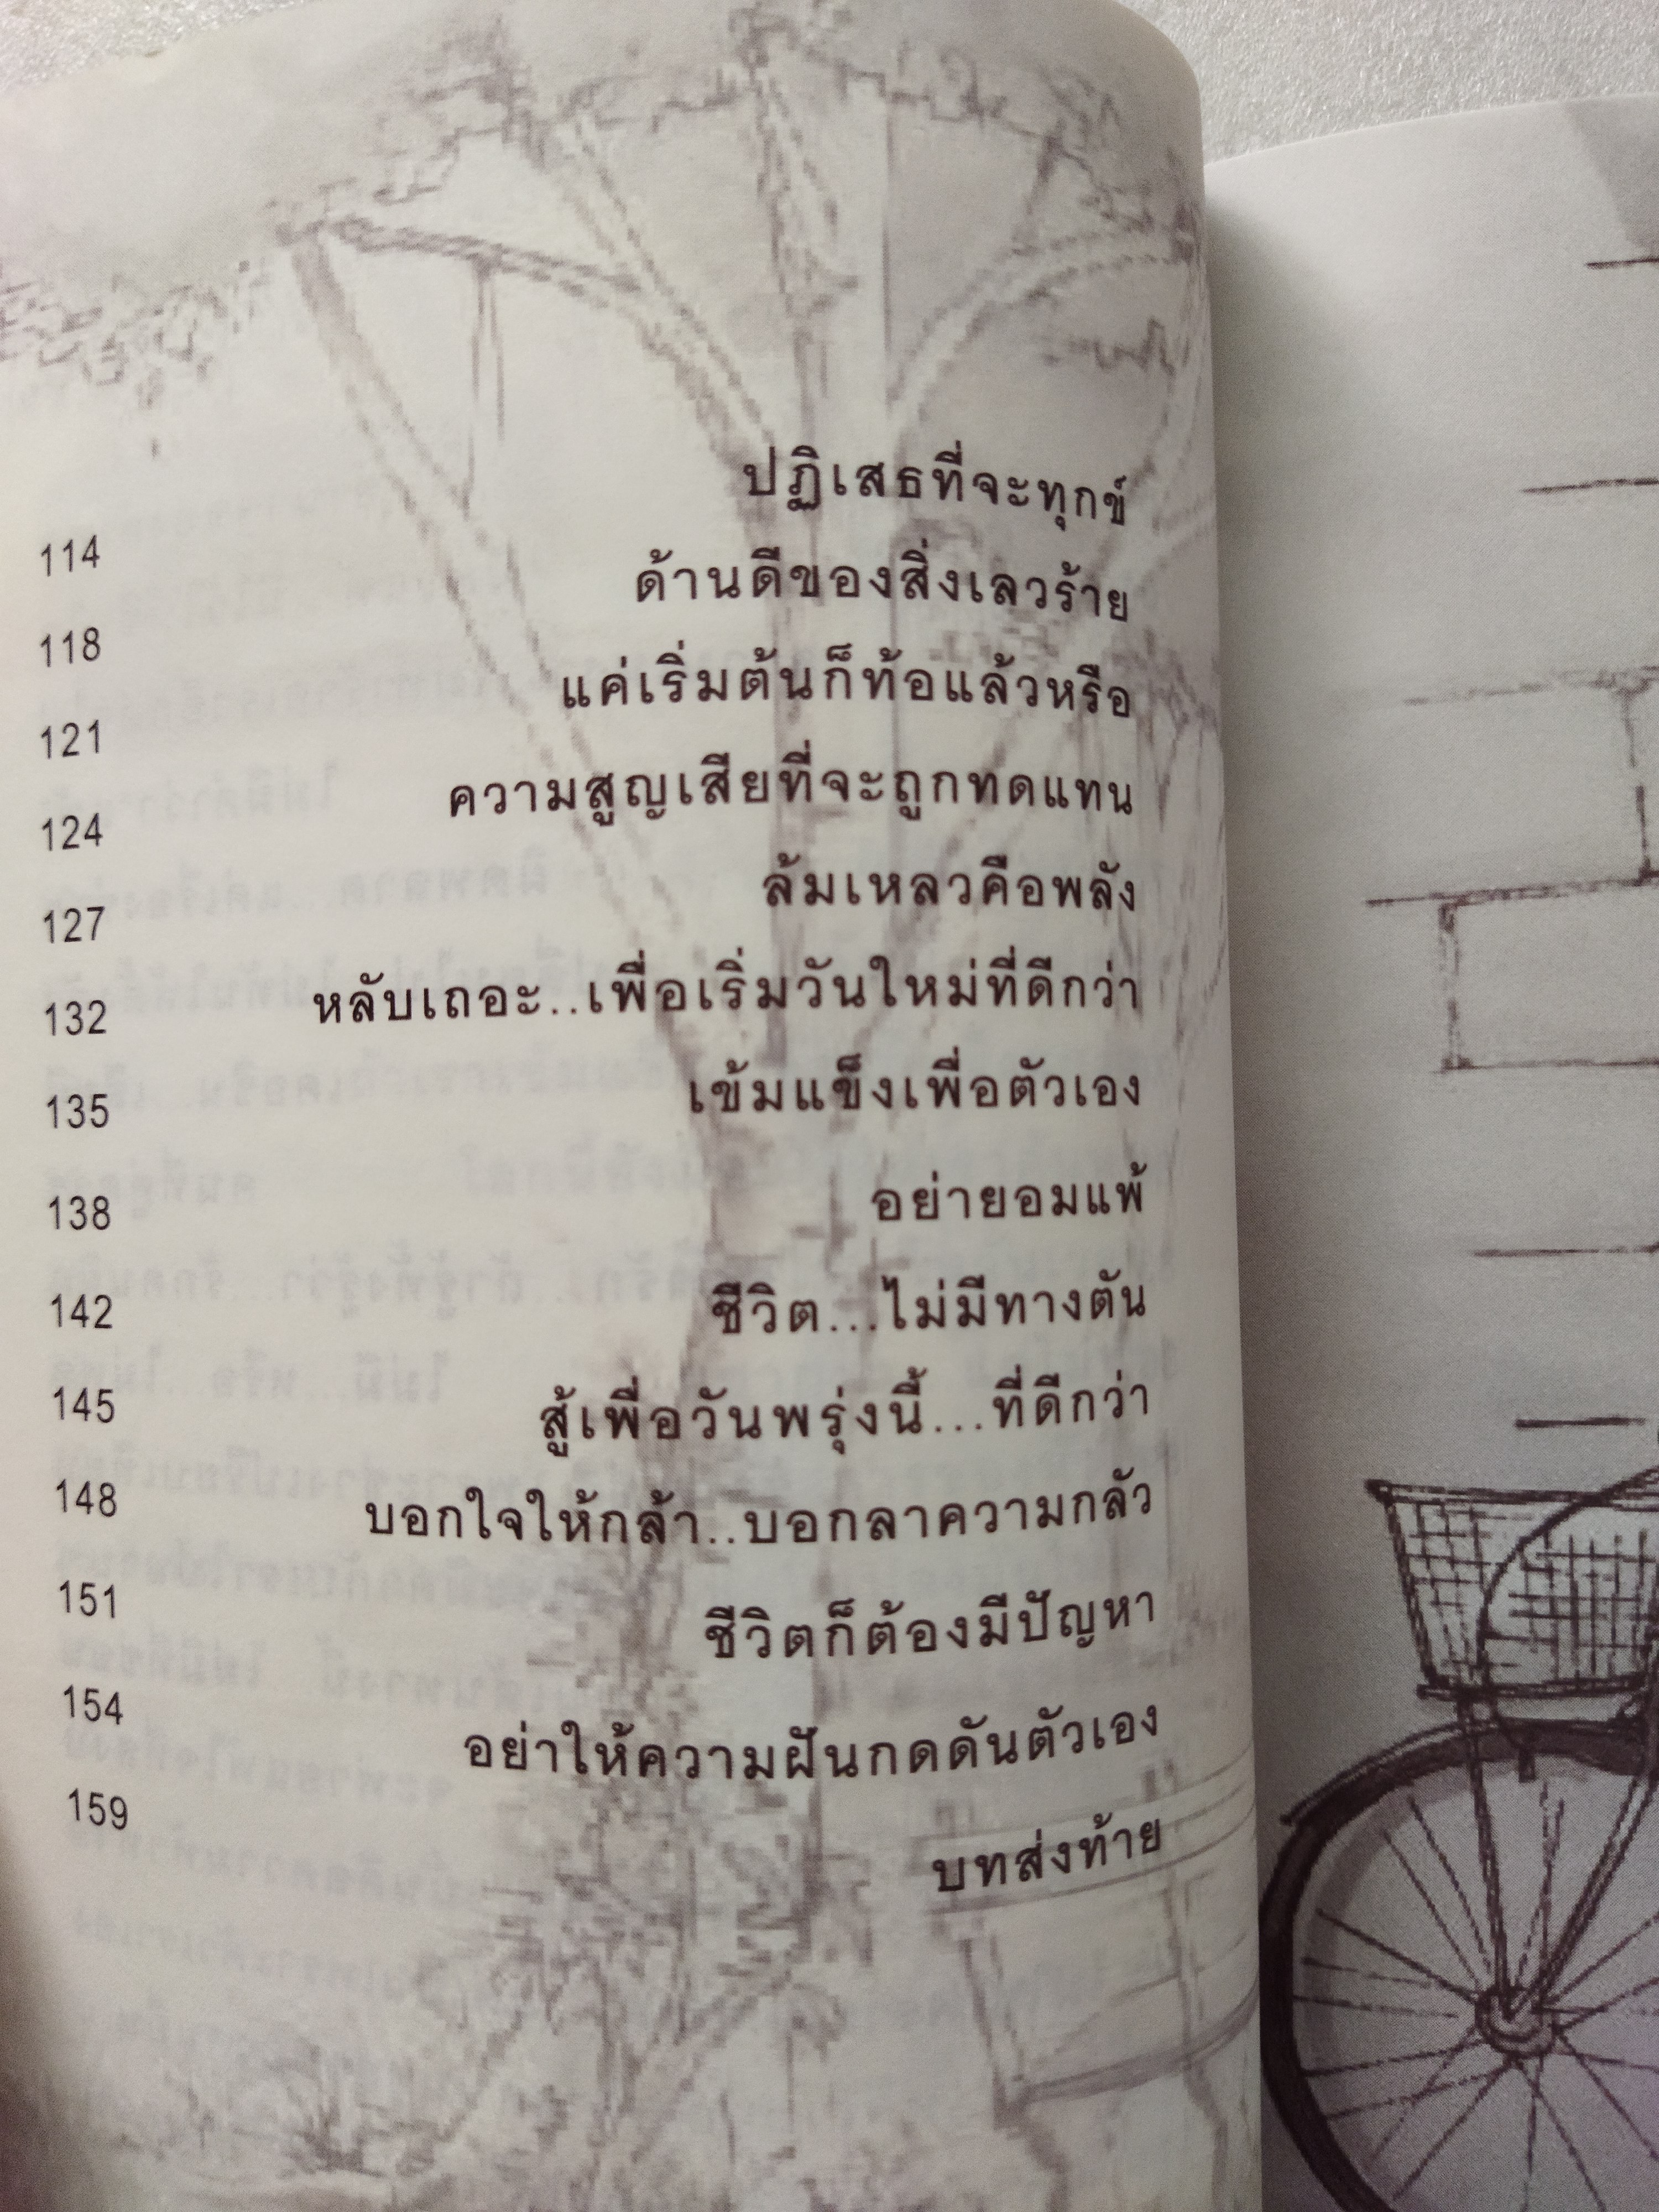 114 ปฏิเสธที่จะทุกข์
118 ด้านดีของสิ่งเลวร้าย
121 แค่เริ่มต้นก็ท้อแล้วหรือ
124 ความสูญเสียที่จะถูกทดแทน
127 ล้มเหลวคือพลัง
132 หลับเถอะ..เพื่อเริ่มวันใหม่ที่ดีกว่า
135 เข้มแข็งเพื่อตัวเอง
138 อย่ายอมแพ้
142 ชีวิต...ไม่มีทางตัน
145 สู้เพื่อวันพรุ่งนี้...ที่ดีกว่า
148 บอกใจให้กล้า..บอกลาความกลัว
151 ชีวิตก็ต้องมีปัญหา
154 อย่าให้ความฝันกดดันตัวเอง
159 บทส่งท้าย